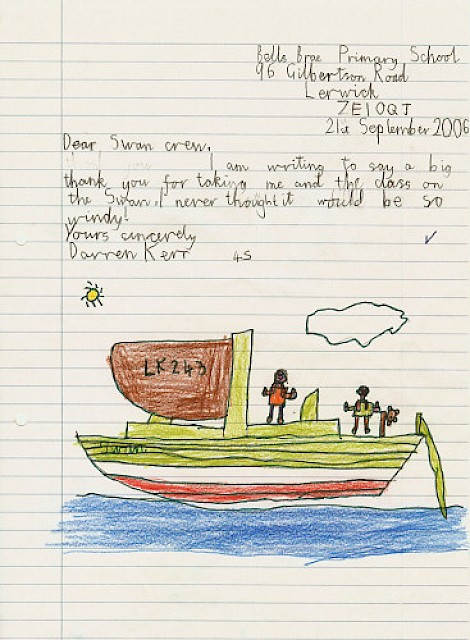 Bells Brae Primary School
96 Gilbertson Road
Lerwick
ZE1 0QJ
21st September 2006
Dear Swan crew,
I am writing to say a big
thank you for taking me and the class on
the Swan. I never thought it would be so
windy!
Yours sincerely
Darren Kerr 4S
LK243
Swan